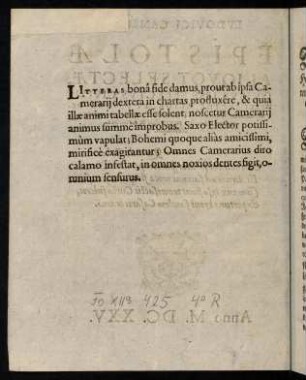 LITTERAS, bonâ fide damus, prout ab ipsa Ca-
merarij dextera in chartas profluxêre, & quia
illæ animi tabellæ esse solent, noscetur Camerarij
animus summè improbus. Saxo Elector potissi-
mùm vapulat; Bohemi quoque aliàs amicissimi,
mirificè exagitantur; Omnes Camerarius diro
calamo infestat, in omnes noxios dentes figit, o-
mnium sensurus.
425 4° R
Anno M. DC. XXV.